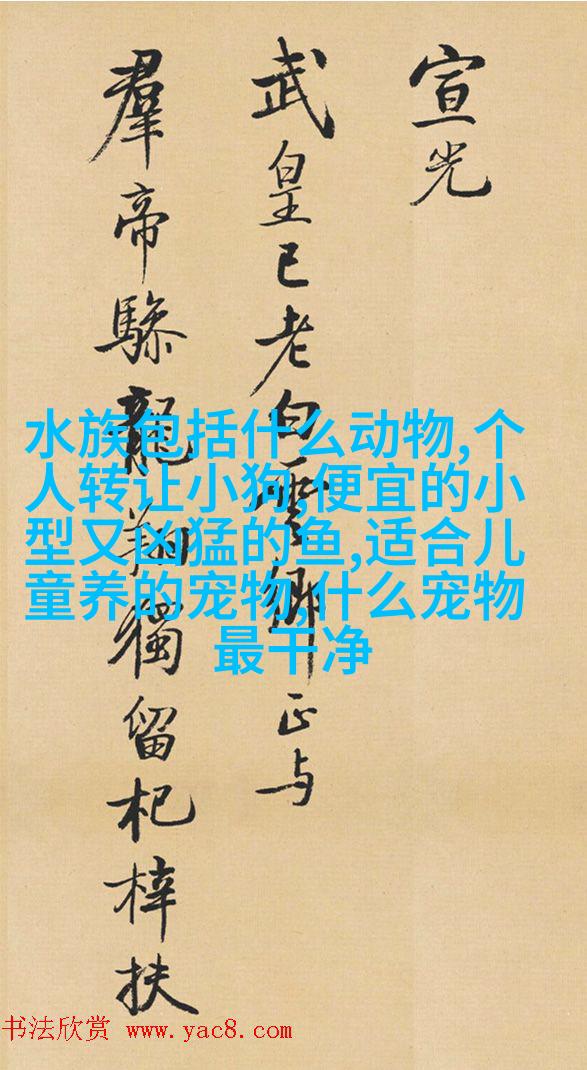 宣光
武皇已老白雲鄉正与
羣帝驂龍翔獨留杞梓扶
水族包括什么动物,个
人转让小狗,便宜的小
型又凶猛的鱼,适合儿
童养的宠物,什么宠物
最干净
书法欣赏 www.yac8.com